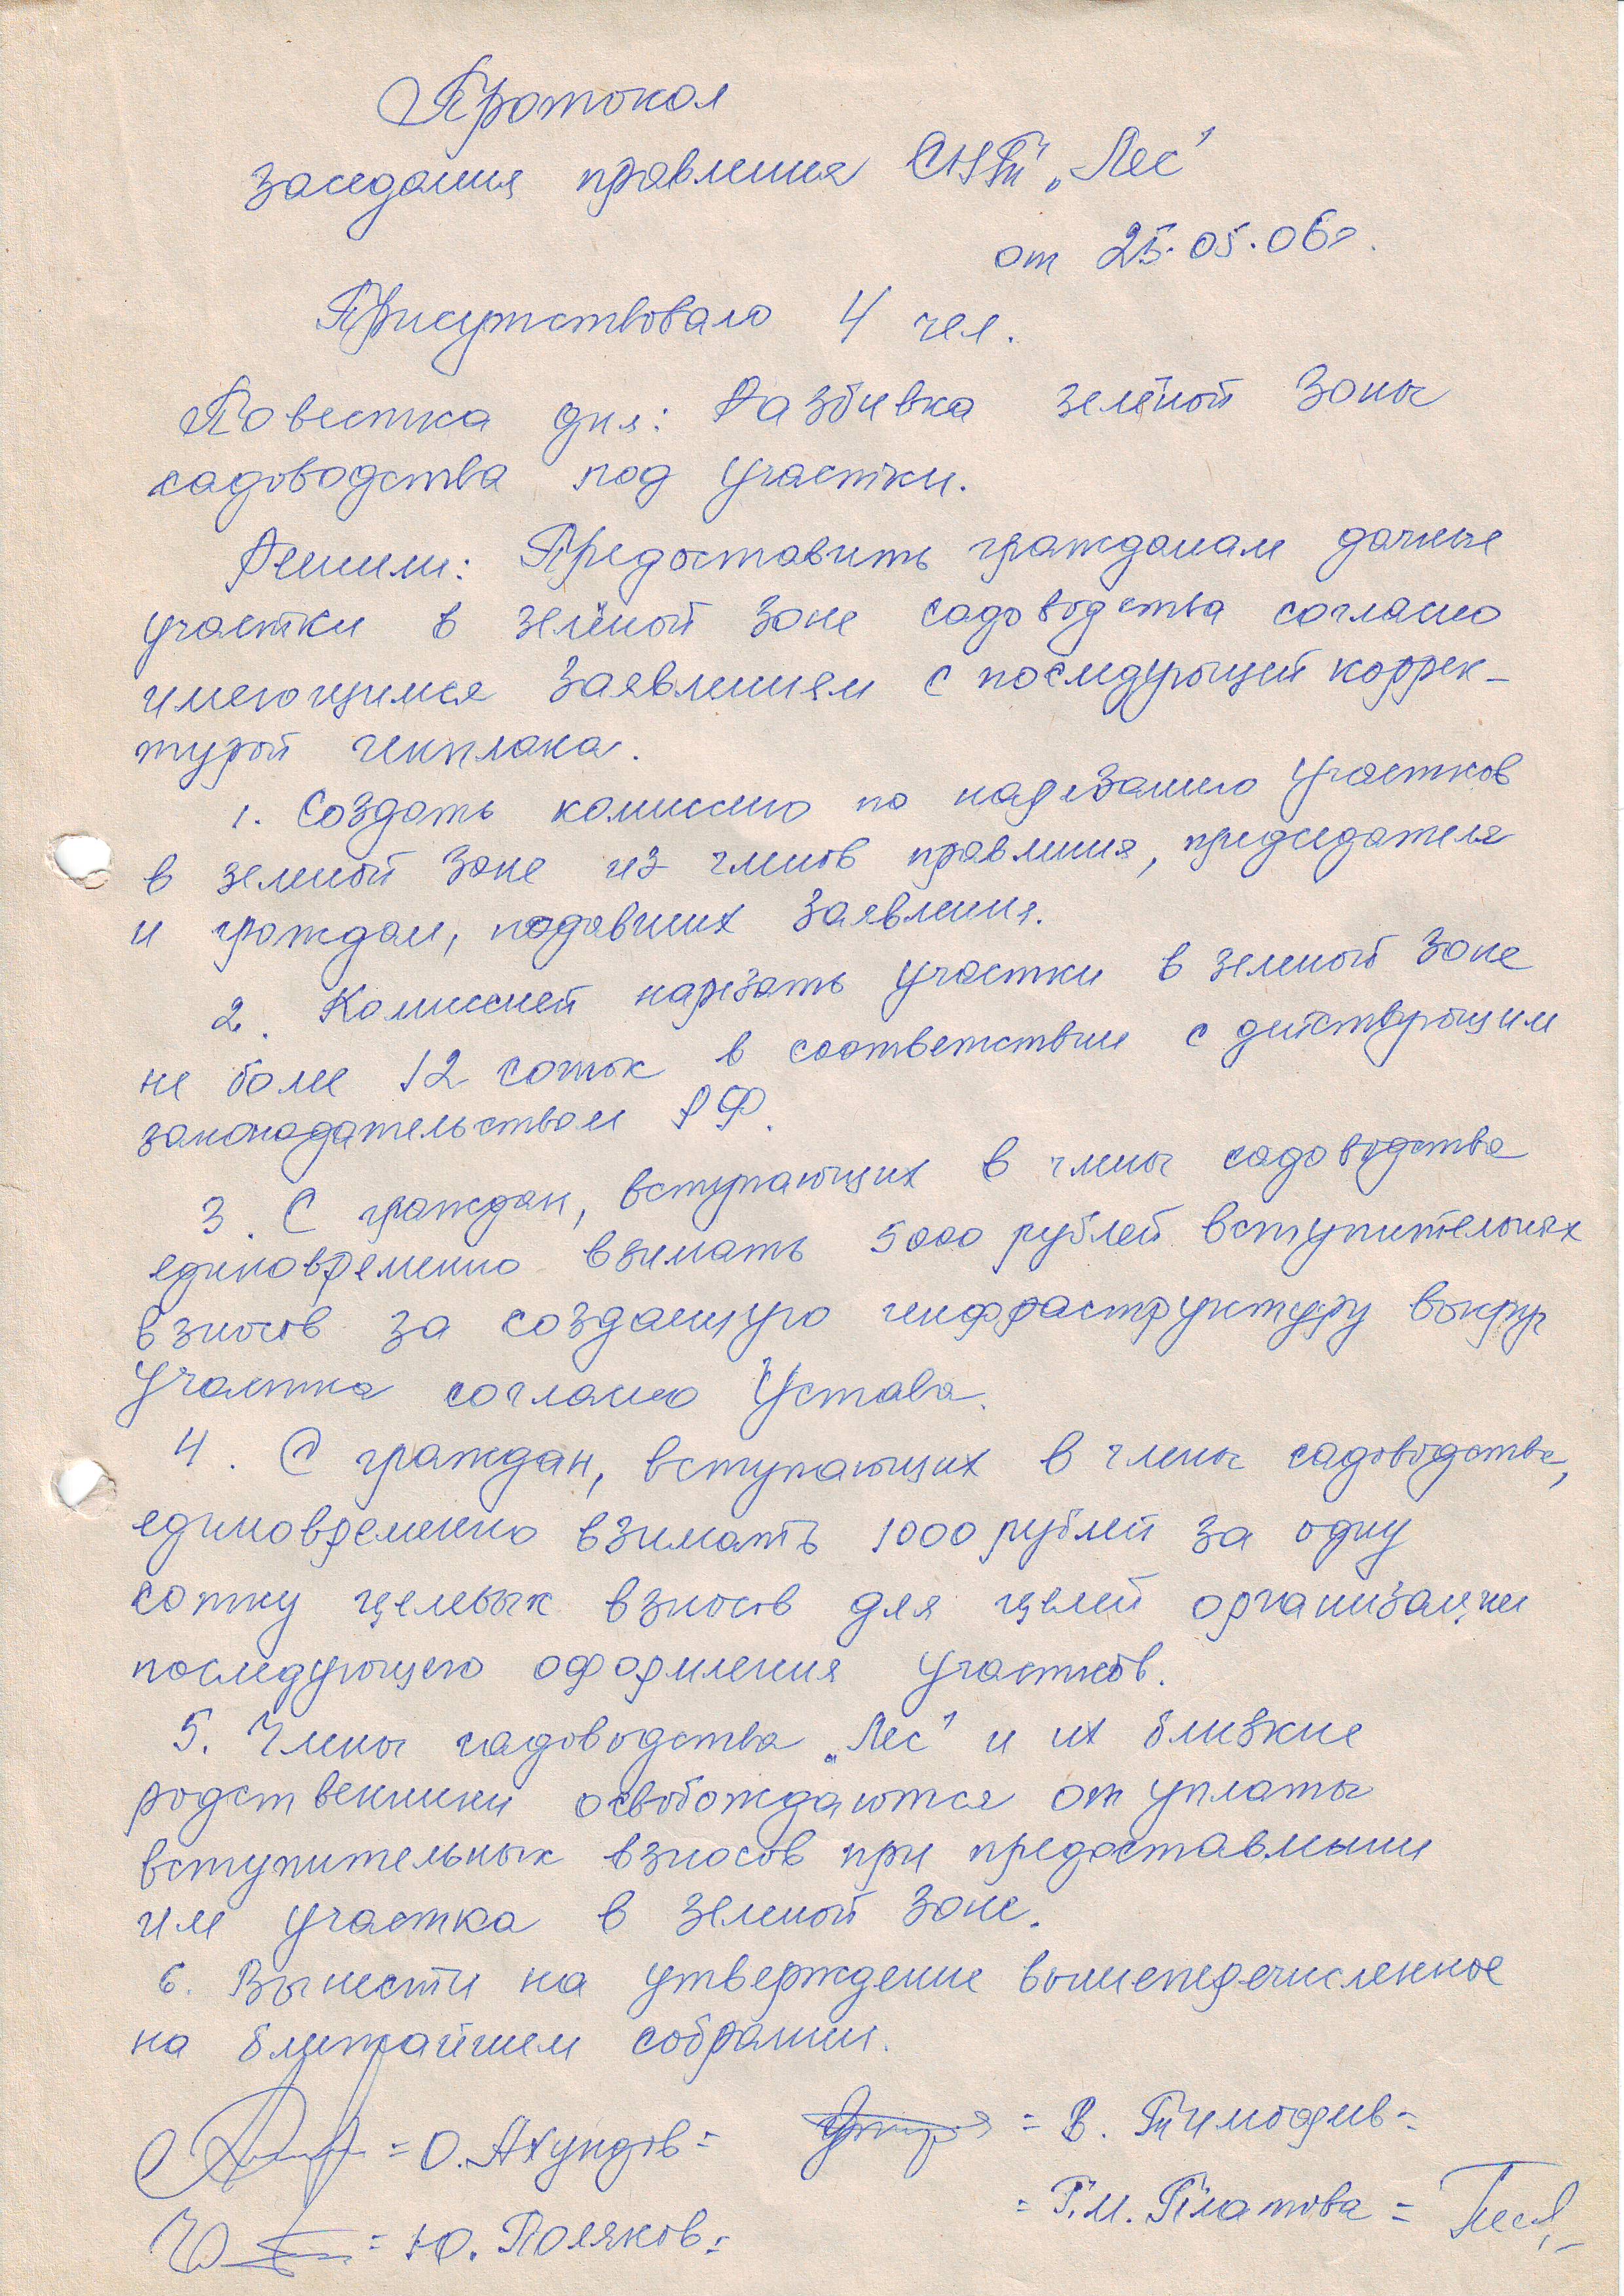 Протокол
заседания правления СНТ „Лес"
от 25.05.06г.
Присутствовало 4 чел.
Повестка дня: Разбивка зелёной зоны
садоводства под участки.
Решили: Предоставить гражданам дачные
участки в зелёной зоне садоводства согласно
имеющимся заявлениям с последующей коррек-
турой генплана.
1. Создать комиссию по нарезанию участков
в зеленой зоне из членов правления, председателя
и граждан, подавших заявления.
2. Комиссией нарезать участки в зеленой зоне
не более 12 соток в соответствии с действующим
законодательством РФ.
3. С граждан, вступающих в члены садоводства
единовременно взимать 5000 рублей вступительных
взносов за созданную инфраструктуру вокруг
участка согласно Устава.
4. С граждан, вступающих в члены садоводства,
единовременно взимать 1000 рублей за одну
сотку целевых взносов для целей организации
последующего оформления участков.
5. Члены садоводства „Лес" и их близкие
родственники освобождаются от уплаты
вступительных взносов при предоставлении
им участка в зеленой зоне.
6. Вынести на утверждение вышеперечисленное
на ближайшем собрании.
= О. Ахундов = = В. Тимофеев =
= Ю. Поляков = = Г.М. Платова =